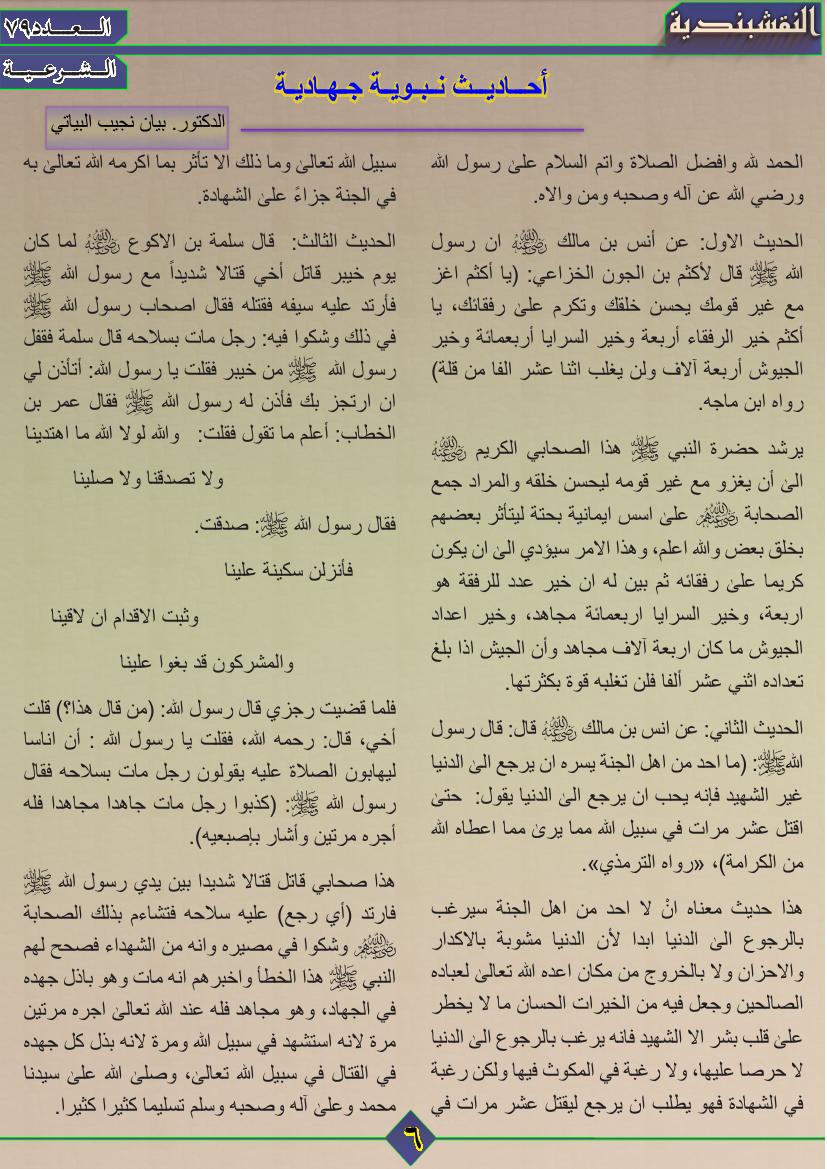 النقشبندية
العدد ٧٩
الشرعية
أحاديث نبوية جهادية
الدكتور. بيان نجيب البياتي
الحمد لله وافضل الصلاة واتم السلام على رسول الله
ورضي الله عن آله وصحبه ومن والاه.
الحديث الاول: عن أنس بن مالك ﷺ ان رسول
الله ﷺ قال لأكثم بن الجون الخزاعي: (يا أكثم اغز
مع غير قومك يحسن خلقك وتكرم على رفقائك، يا
أكثم خير الرفقاء أربعة وخير السرايا أربعمائة وخير
الجيوش أربعة آلاف ولن يغلب اثنا عشر الفا من قلة)
رواه ابن ماجه.
يرشد حضرة النبي ﷺ هذا الصحابي الكريم رضي الله عنه
الى أن يغزو مع غير قومه ليحسن خلقه والمراد جمع
الصحابة رضي الله عنهم على اسس ايمانية بحتة ليتأثر بعضهم
بخلق بعض والله اعلم، وهذا الامر سيؤدي الى ان يكون
كريما على رفقائه ثم بين له ان خير عدد للرفقة هو
اربعة، وخير السرايا اربعمائة مجاهد، وخير اعداد
الجيوش ما كان اربعة آلاف مجاهد وأن الجيش اذا بلغ
تعداده اثني عشر ألفا فلن تغلبه قوة بكثرتها.
الحديث الثاني: عن انس بن مالك رضي الله عنه قال: قال رسول
الله ﷺ: (ما احد من اهل الجنة يسره ان يرجع الى الدنيا
غير الشهيد فإنه يحب ان يرجع الى الدنيا يقول: حتىٰ
اقتل عشر مرات في سبيل الله مما يرىٰ مما اعطاه الله
من الكرامة)، «رواه الترمذي».
هذا حديث معناه انْ لا احد من اهل الجنة سيرغب
بالرجوع الى الدنيا ابدا لأن الدنيا مشوبة بالاكدار
والاحزان ولا بالخروج من مكان اعده الله تعالىٰ لعباده
الصالحين وجعل فيه من الخيرات الحسان ما لا يخطر
علىٰ قلب بشر الا الشهيد فانه يرغب بالرجوع الى الدنيا
لا حرصا عليها، ولا رغبة في المكوث فيها ولكن رغبة
في الشهادة فهو يطلب ان يرجع ليقتل عشر مرات في
سبيل الله تعالىٰ وما ذلك الا تأثر بما اكرمه الله تعالىٰ به
في الجنة جزاءً علىٰ الشهادة.
الحديث الثالث: قال سلمة بن الاكوع رضي الله عنه لما كان
يوم خيبر قاتل أخي قتالا شديداً مع رسول الله ﷺ
فأرتد عليه سيفه فقتله فقال اصحاب رسول الله ﷺ
في ذلك وشكوا فيه: رجل مات بسلاحه قال سلمة فقفل
رسول الله ﷺ من خيبر فقلت يا رسول الله: أتأذن لي
ان ارتجز بك فأذن له رسول الله ﷺ فقال عمر بن
الخطاب: أعلم ما تقول فقلت: والله لولا الله ما اهتدينا
ولا تصدقنا ولا صلينا
فقال رسول الله ﷺ: صدقت.
فأنزلن سكينة علينا
وثبت الاقدام ان لاقينا
والمشركون قد بغوا علينا
فلما قضيت رجزي قال رسول الله: (من قال هذا؟) قلت
أخي، قال: رحمه الله، فقلت يا رسول الله : أن اناسا
ليهابون الصلاة عليه يقولون رجل مات بسلاحه فقال
رسول الله ﷺ: (كذبوا رجل مات جاهدا مجاهدا فله
أجره مرتين وأشار بإصبعيه).
هذا صحابي قاتل قتالا شديدا بين يدي رسول الله ﷺ
فارتد (أي رجع) عليه سلاحه فتشاءم بذلك الصحابة
رضي الله عنهم وشكوا في مصيره وانه من الشهداء فصحح لهم
النبي ﷺ هذا الخطأ واخبرهم انه مات وهو باذل جهده
في الجهاد، وهو مجاهد فله عند الله تعالىٰ اجره مرتين
مرة لانه استشهد في سبيل الله ومرة لانه بذل كل جهده
في القتال في سبيل الله تعالىٰ، وصلىٰ الله علىٰ سيدنا
محمد وعلىٰ آله وصحبه وسلم تسليما كثيرا كثيرا.
٦